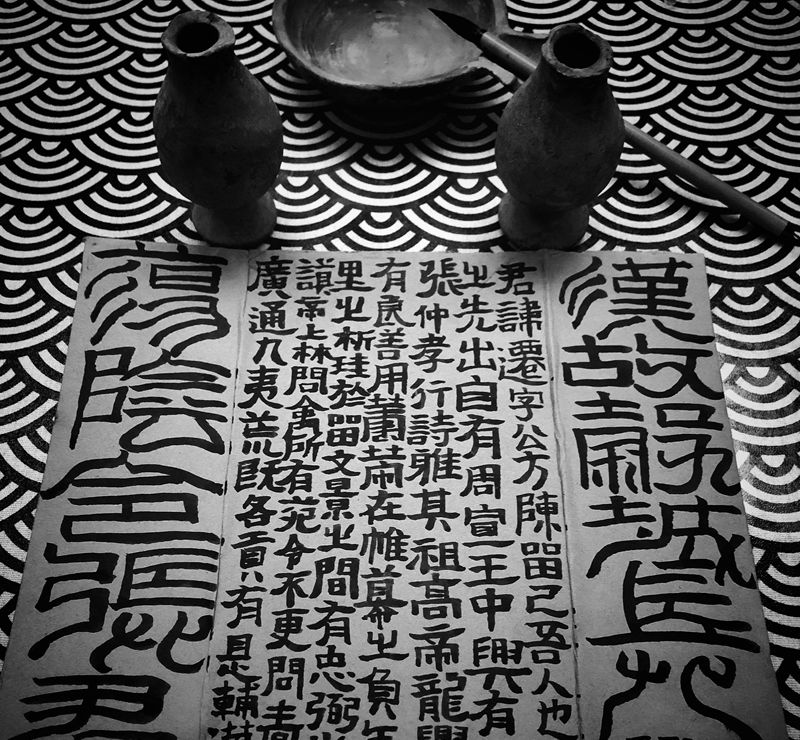 漢故穀城長
君諱遷字公方陳留己吾人也
之先出自有周宣王中興有
張仲孝行詩雅其祖高帝龍
有良善用籌策在帷幕之負
里之析珪於留文景之間有忠弼
帝上林問禽所有苑令不更問嗇
廣通九夷荒既各貢有是輔漢
蕩陰令張君